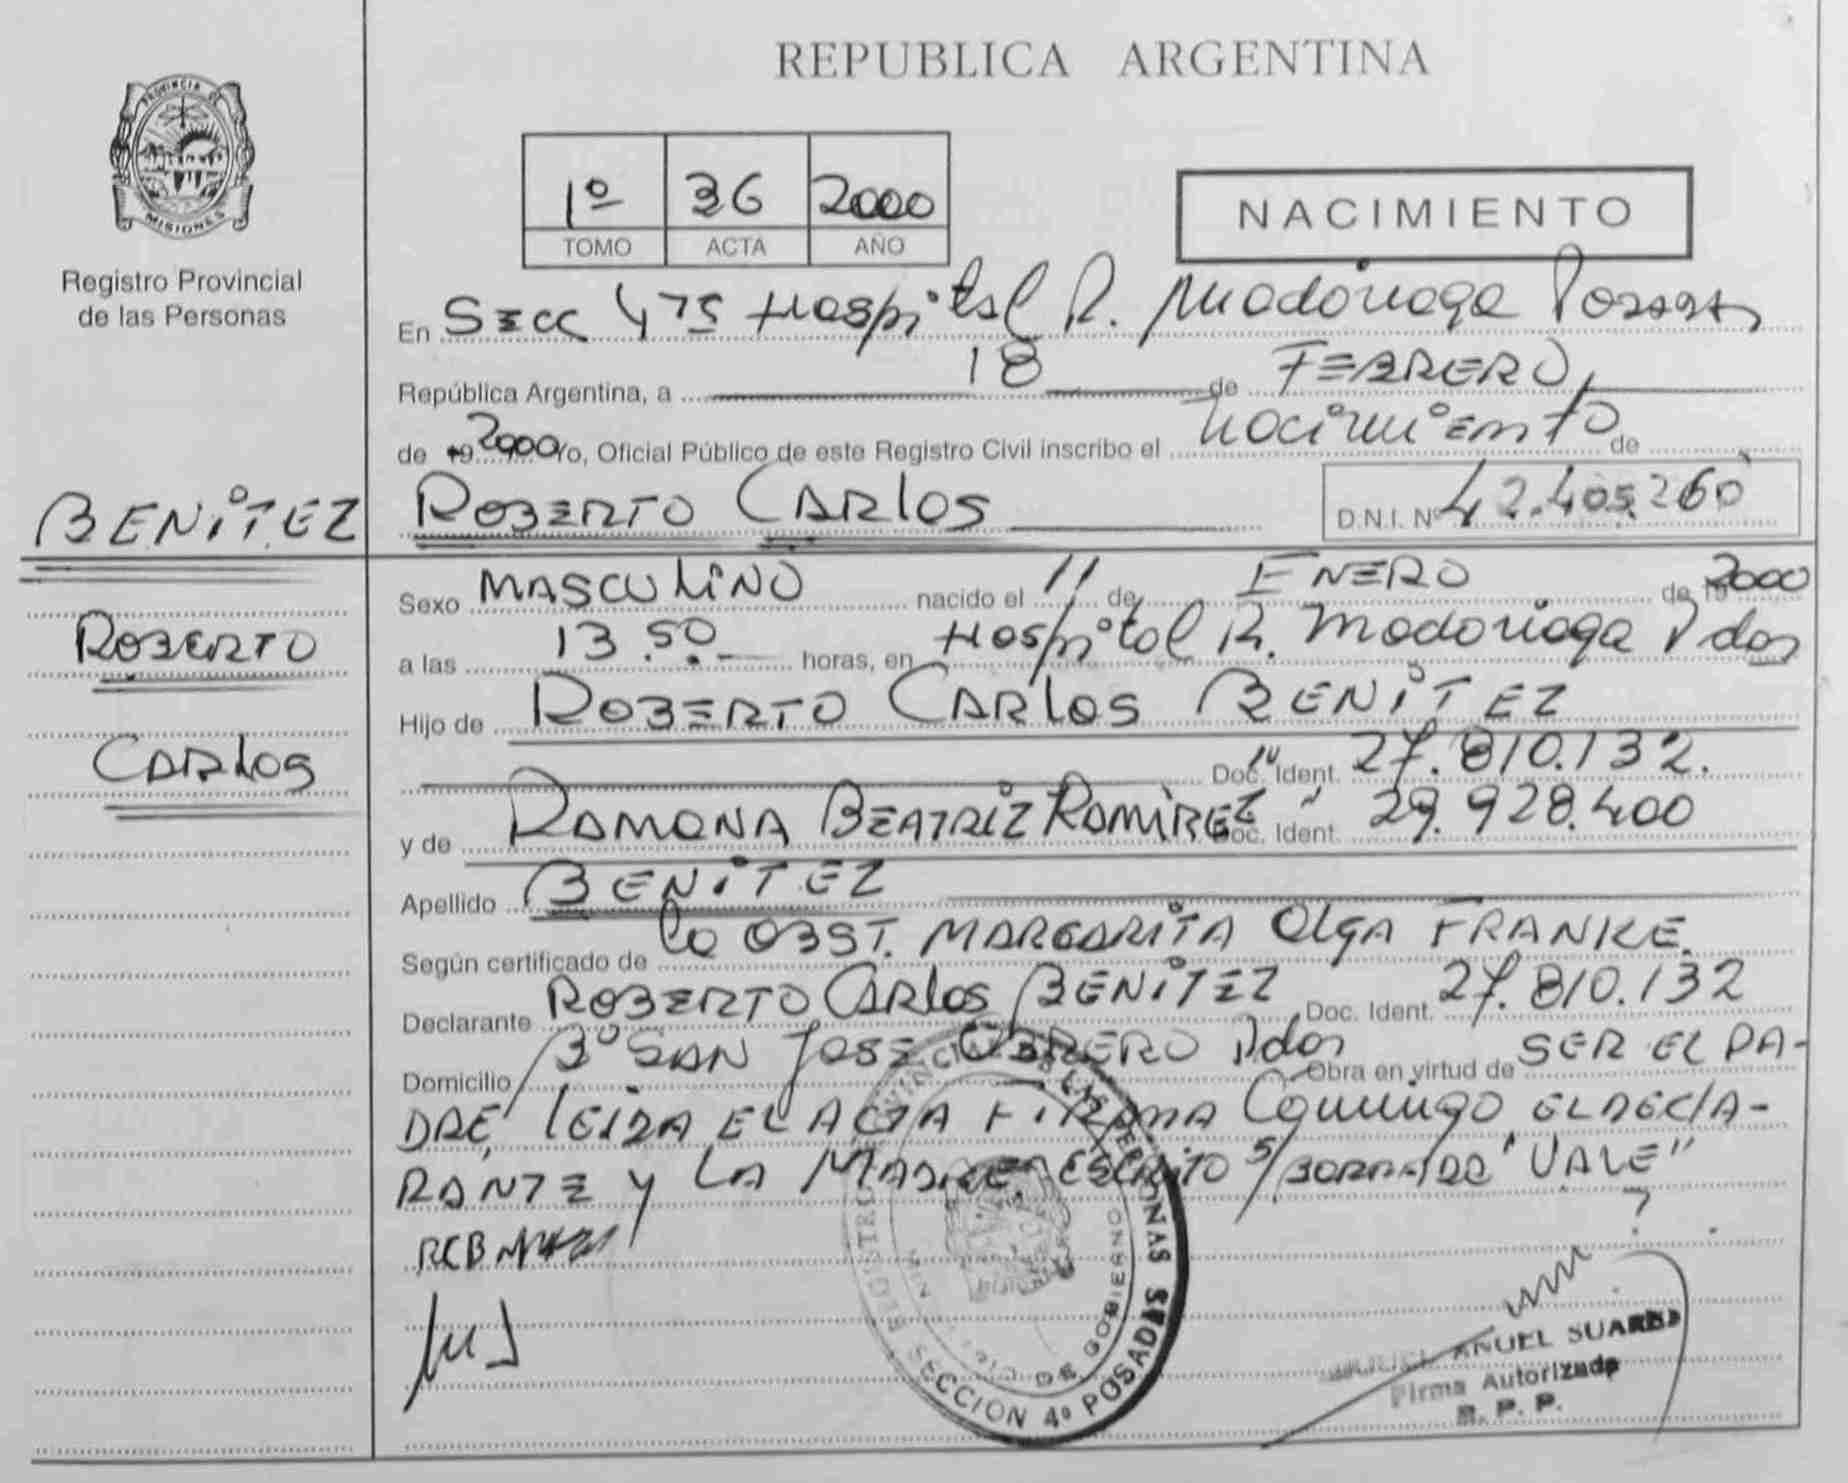 REPUBLICA ARGENTINA
PROVINCIA DE
MISIONES
Registro Provincial
de las Personas
1º 36 2000
TOMO ACTA AÑO
NACIMIENTO
En Secc 4ta Hospital R. Madariaga Posadas
República Argentina, a 18 de FEBRERO,
de 19 2000 Yo, Oficial Público de este Registro Civil inscribo el nacimiento de
BENITEZ
ROBERTO CARLOS D.N.I. Nº 42.405.260
ROBERTO
CARLOS
Sexo MASCULINO nacido el 11 de ENERO de 19 2000
a las 13.50 horas, en Hospital R. Madariaga Pdas
Hijo de ROBERTO CARLOS BENITEZ
Doc. Ident. 27.810.132.
y de RAMONA BEATRIZ RAMIREZ Doc. Ident. 29.928.400
Apellido BENITEZ
Según certificado de la OBST. MARGARITA OLGA FRANKE.
Declarante ROBERTO CARLOS BENITEZ Doc. Ident. 27.810.132
Domicilio Bº SAN JOSE OBRERO Pdas Obra en virtud de SER EL PA-
DRE, LEIDA EL ACTA FIRMA Conmigo EL DECLA-
RANTE Y LA MADRE. ESCRITO S/BORRADO "VALE"
RCB
SECCION 4º POSADAS
DE GOBIERNO
ANUEL SUAREZ
Firma Autorizada
R. P. P.